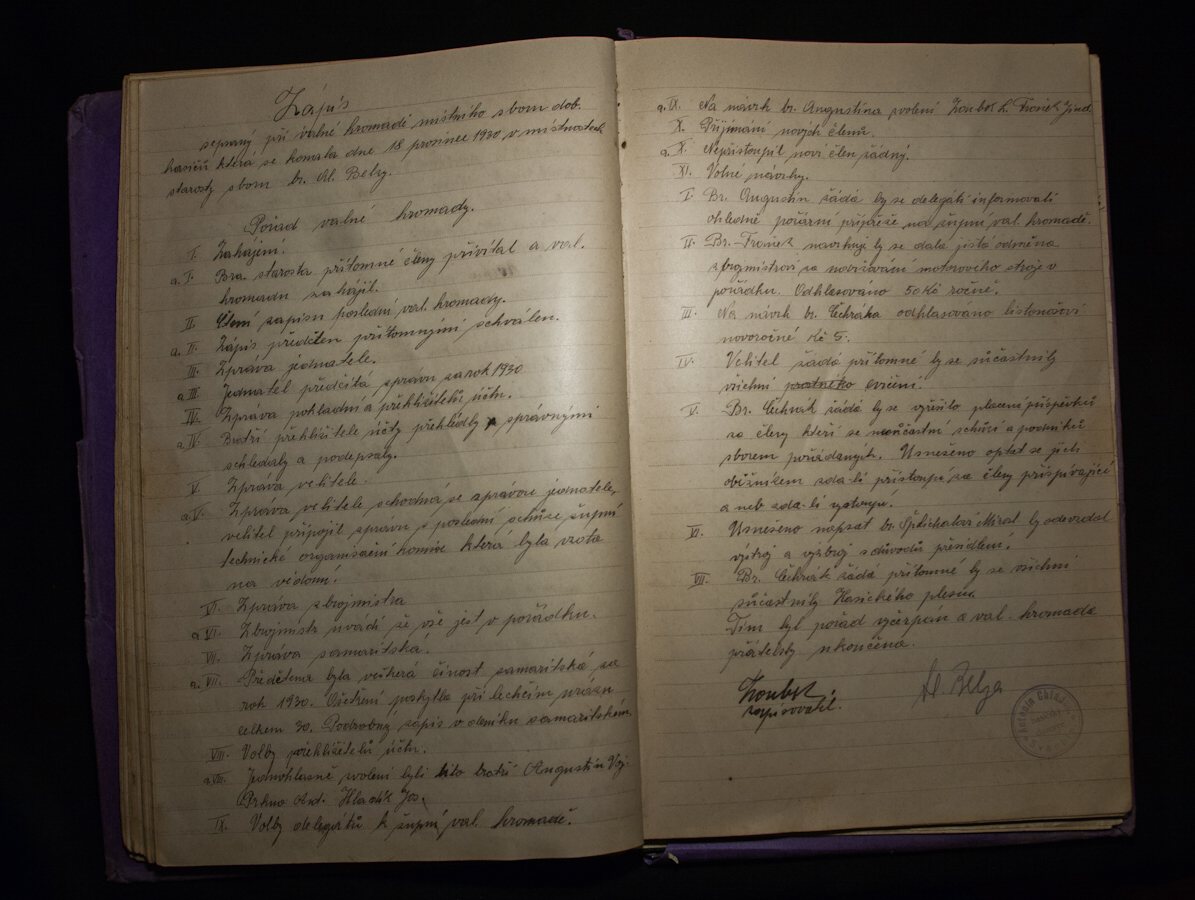 Zápis
sepsaný při valné hromadě místního sboru dob.
hasičů která se konala dne 18 prosince 1930 v místnostech
starosty sboru br. Al. Belzy.
Pořad valné hromady.
I. Zahájení.
a. I. Bra. starosta přítomné členy přivítal a val.
hromadu zahájil.
II. Čtení zápisu poslední val. hromady.
a. II. Zápis předčten přítomnými schválen.
III. Zpráva jednatele.
a III. Jednatel předčítá zprávu za rok 1930
IV. Zpráva pokladní a přehlížitelů účtu.
a IV. Bratří přehlížitele účty přehlédly a správnými
schledaly a podepsaly.
V. Zpráva velitele.
a V. Zpráva velitele schodná se zprávou jednatele,
velitel připojil zprávu z poslední schůze župní
technické organisační komise která byla vzata
na vědomí.
VI. Zpráva zbrojmistra
a VI. Zbrojmistr uvádí že vše jest v pořádku.
VII. Zpráva samaritská.
a. VII. Předčtena byla veškerá činost samaritská za
rok 1930. Ošetření poskytla při lechčím úrazu
celkem 30. Podrobný zápis v deníku samaritském.
VIII. Volby přehlížitelů účtu.
a VIII. Jednohlasně zvoleni byli tito bratří Augustin Voj.
Prkno Ant. Hladík Jos.
IX. Volby delegátů k župní val. hromadě.
a. IX. Na návrh br. Augustina zvoleni Zoubek L. Froněk Jind.
X. Přijímání nových členů.
a. X. Nepřistoupil noví člen žádný.
XI. Volné návrhy.
I. Br. Augustin žádá by se delegáti informovali
ohledně požární přípřeže na župní val. hromadě.
II. Br. Froněk navrhuje by se dala jistá odměna
zbrojmistrovi za udržování motorového stroje v
pořádku. Odhlasováno 50 Kč ročně.
III. Na návrh br. Čehráka odhlasováno listonošovi
novoročné Kč 5.
IV. Velitel žádá přítomné by se súčastnily
všichni cvičení.
V. Br. Čehrák žádá by se vyřešilo placení příspěvků
za členy kteří se nesúčastní schůzí a podniků
sborem pořádaných. Usnešeno optat se jich
oběžníkem zda-li přistoupí za členy přispívající
a neb zda-li vystoupí.
VI. Usnešeno napsat br. Mirosl. by odevzdal
výstroj a výzbroj z důvodů přesídlení.
VII. Br. Čehrák žádá přítomné by se všichni
súčastnily Hasičského plesu.
Tím byl pořad vyčerpán a val. hromada
přátelsky ukončena.
Zoubek
zapisovatel.
Al. Belza